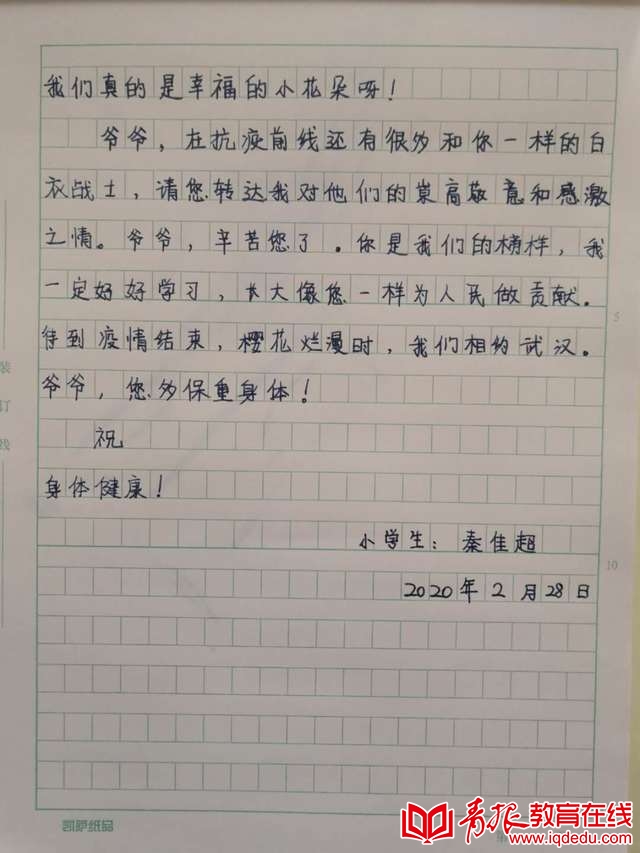 我们真的是幸福的小花朵呀！
爷爷，在抗疫前线还有很多和你一样的白
衣战士，请您转达我对他们的崇高敬意和感激
之情。爷爷，辛苦您了。你是我们的榜样，我
一定好好学习，长大像您一样为人民做贡献。
待到疫情结束，樱花烂漫时，我们相约武汉。
爷爷，您多保重身体！
祝
身体健康！
小学生：秦佳超
2020年2月28日
装
订
线
5
10
凯萨纸品
青报教育在线
www.iqdedu.com